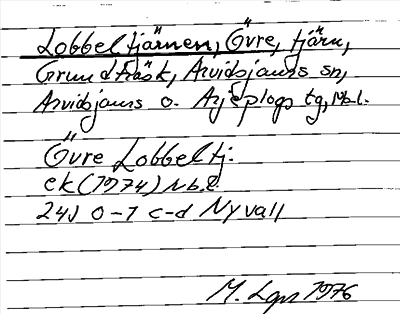 Lobbeltjärnen, Övre, tjärn,
Grundträsk, Arvidsjaurs sn,
Arvidsjaurs o. Arjeplogs tg, Nbl.
Övre Lobbeltj.
ek (1974) Nb.l.
24J 0-1 c-d Nyvall
M. Lgn 1976